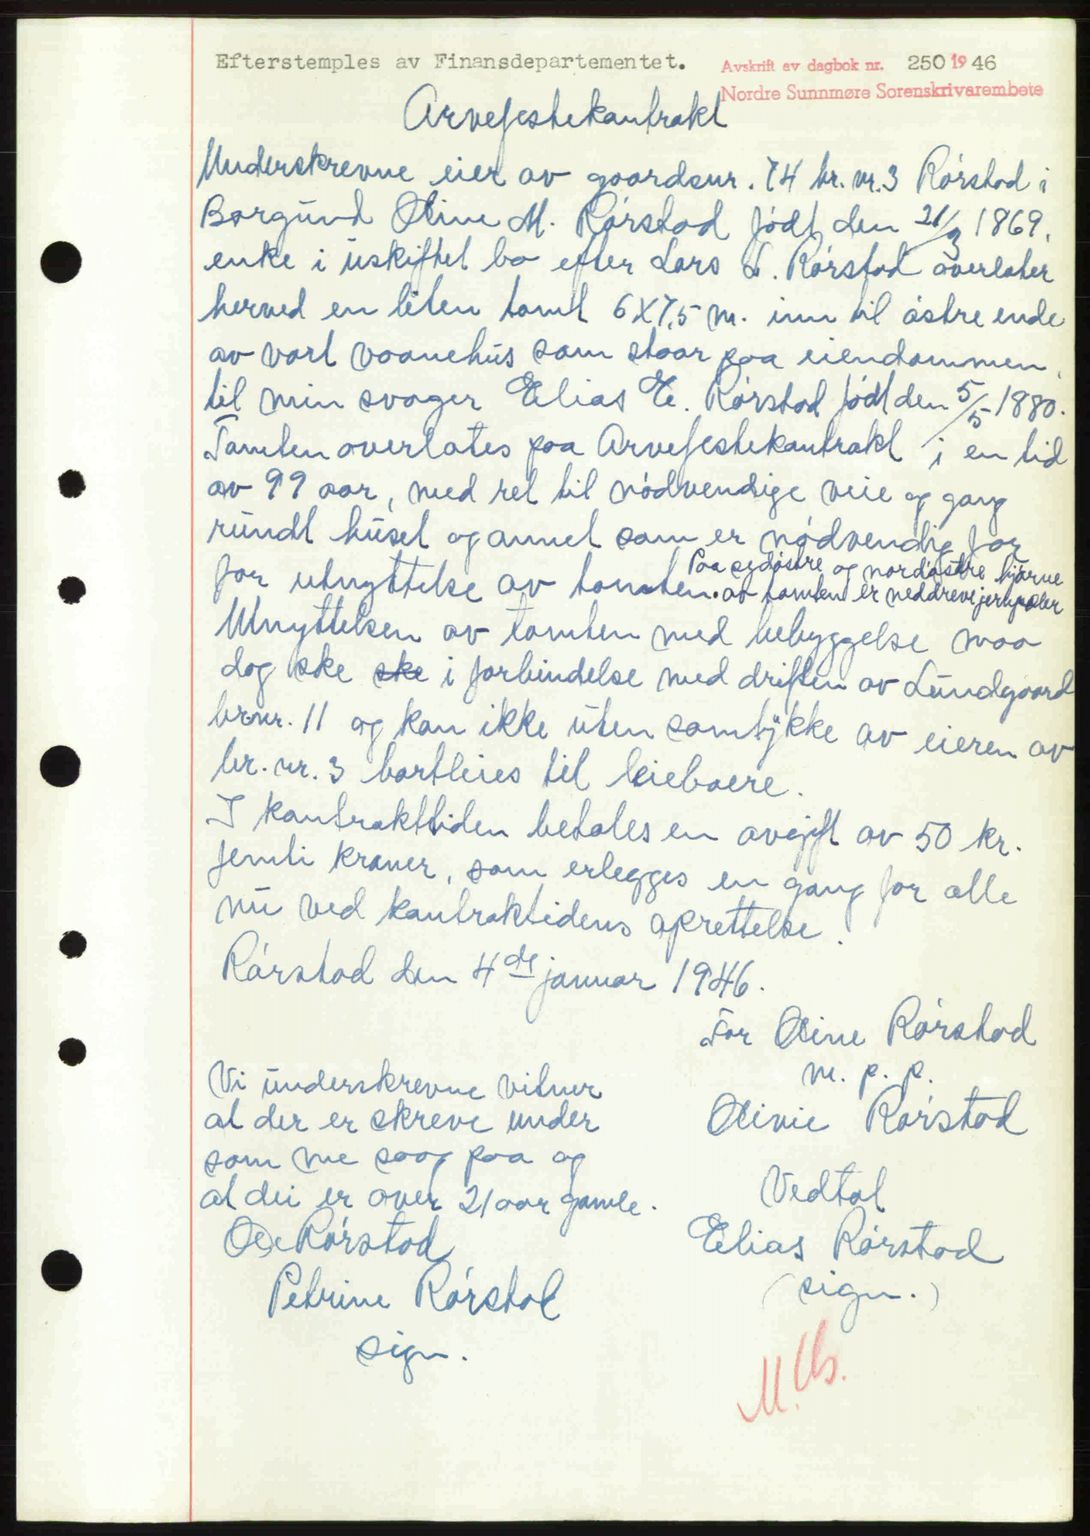 Efterstemples av Finansdepartementet.
Avskrift av dagbok nr. 250 1946
Nordre Sunnmøre Sorenskrivarembete
Arvefestekontrakt
Underskrevne eier av gaardsnr. 74 br. nr. 3 Rørstad i
Borgund Oline M. Rørstad født den 21/3 1869,
enke i uskiftet bo efter Lars L. Rørstad overlater
herved en liten tomt 6 x 7,5 m. inn til østre ende
av vort vaanehus som staar paa eiendommen,
til min svoger Elias E. Rørstad født den 5/5 1880.
Tomten overlates paa Arvefestekontrakt i en tid
av 99 aar, med ret til nødvendige veie og gang
rundt huset og annet som er nødvendig for
for utnyttelse av tomten. Paa sydøstre og nordøstre hjørne
av tomten er neddreve jernpæler
Utnyttelsen av tomten med bebyggelse maa
dog ske ske i forbindelse med driften av Lundgaard
br.nr. 11 og kan ikke uten samtykke av eieren av
br. nr. 3 bortleies til leieboere.
I kontrakttiden betales en avgift av 50 kr.
femti kroner, som erlegges en gang for alle
nu ved kontraktidens oprettelse.
Rørstad den 4de januar 1946.
For Oline Rørstad
m. p. p.
Olivie Rørstad
Vi underskrevne vitner
at der er skreve under
som me saag paa og
at dei er over 21 aar gamle.
Vedtat
Elias Rørstad
(sign.)
Ole Rørstad
Petrine Rørstad
sign.